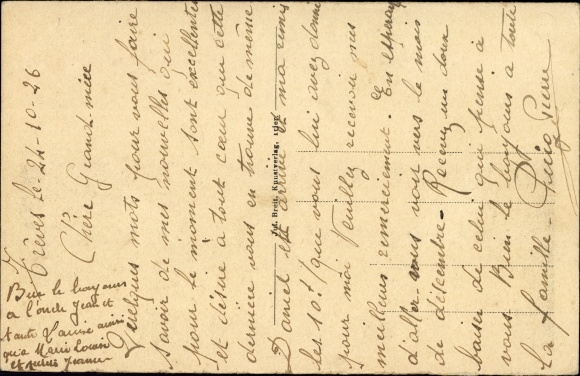 Trèves le 24-10-26
Chère Grand mère
Quelques mots pour vous faire
savoir de mes nouvelles qui
pour le moment sont excellentes
et désire à tout cœur que cette
dernière vous en trouve de même
Daniel est arrivé et ma remis
les 10f que vous lui avez donné
pour moi Veuillez recevoir mes
meilleurs remerciement. En esperant
d'aller vous voir vers le mois
de décembre. Recevez un doux
baiser de celui qui pense à
vous Bien le bonjour à toute
la famille.
Bien le bonjour
a l'oncle Jean et
tante ainsi
qu'a Marie
et Jeanne
Jos. Breit, Kunstverlag, Trier